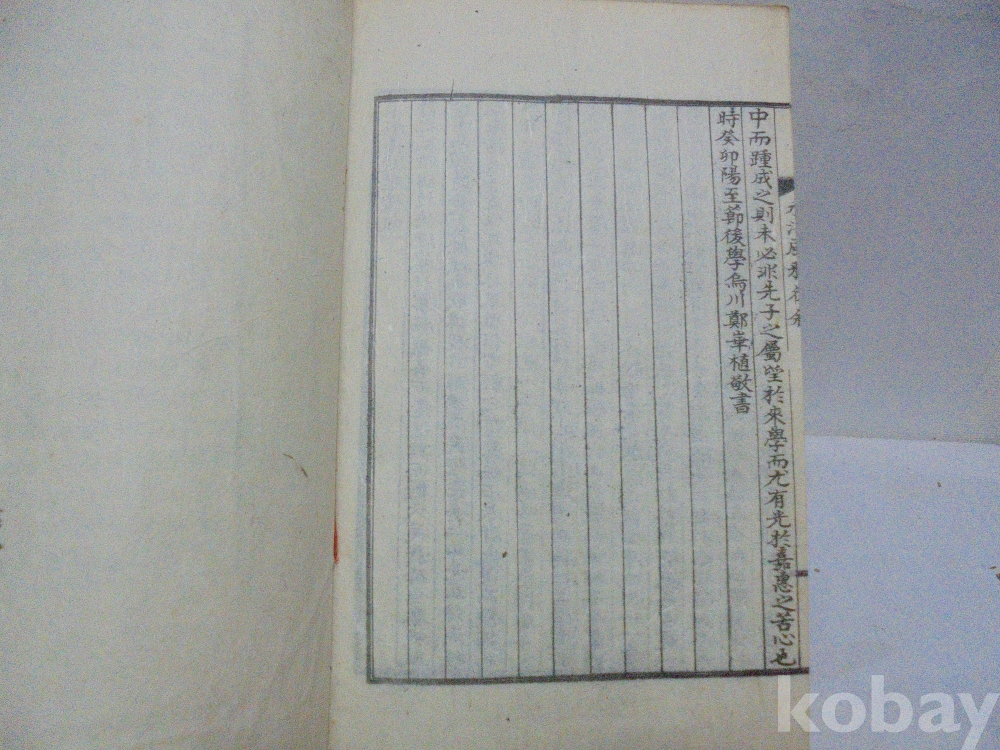 中而踵成之則未必非先子之屬望於來學而尤有光於嘉惠之苦心也
時癸卯陽至節後學烏川鄭崋植敬書
kobay